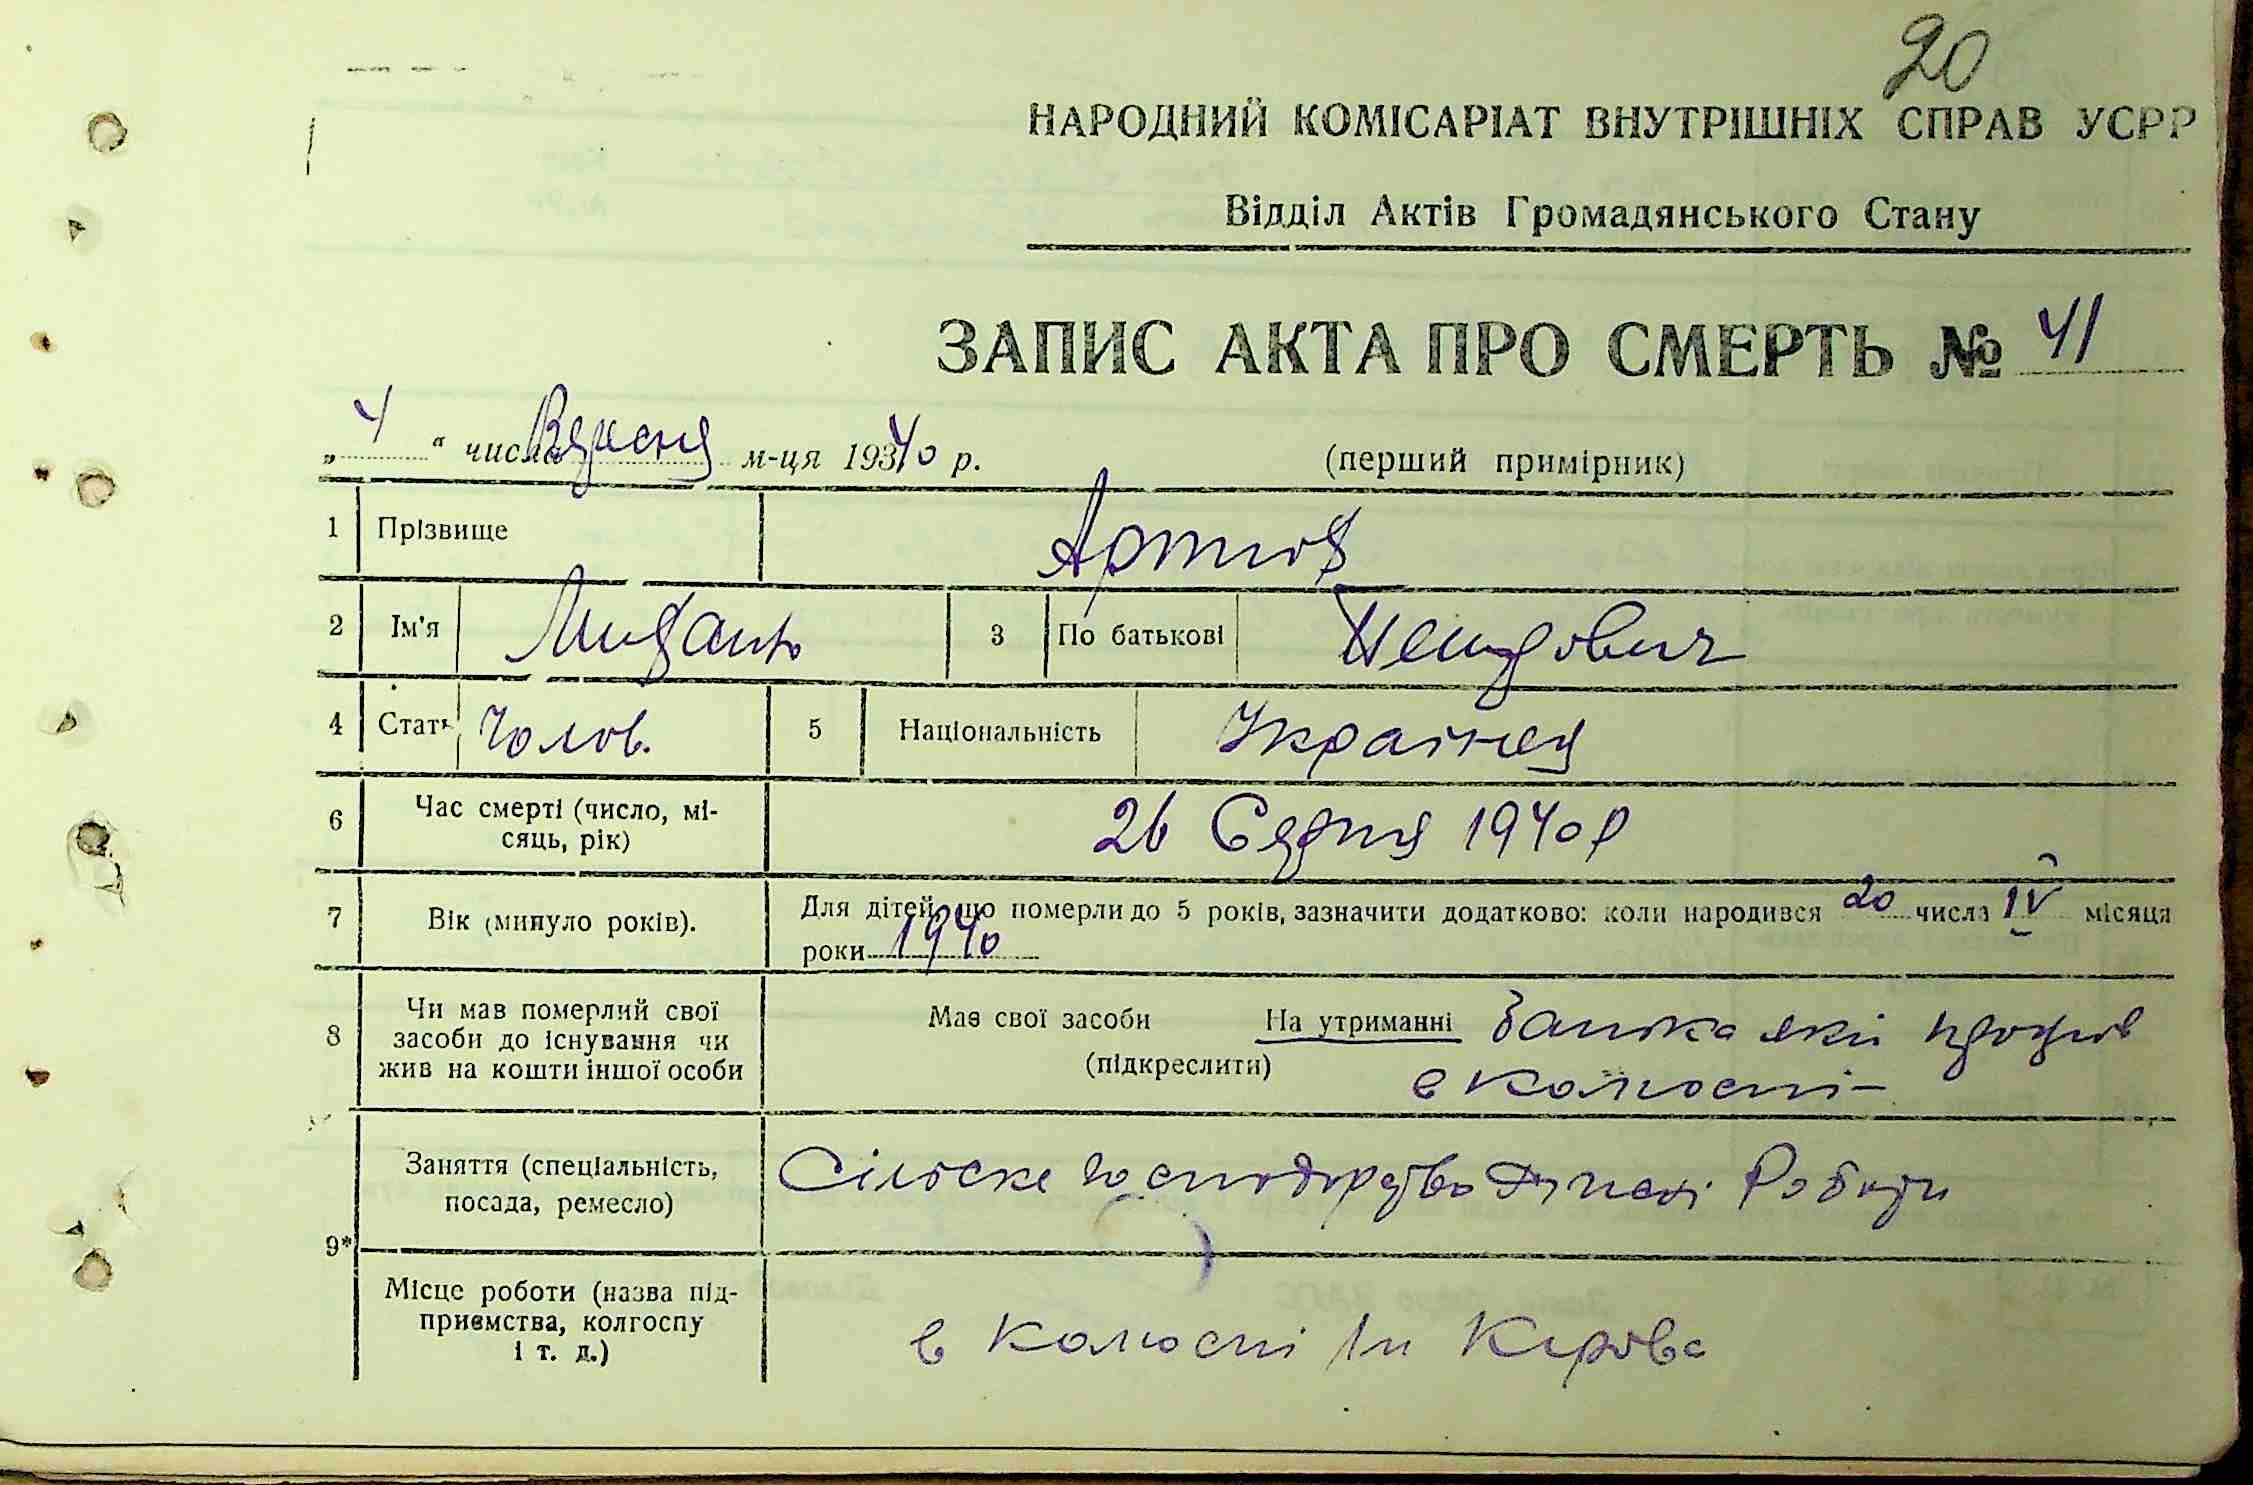 20
НАРОДНИЙ КОМІСАРІАТ ВНУТРІШНІХ СПРАВ УСРР
Відділ Актів Громадянського Стану
ЗАПИС АКТА ПРО СМЕРТЬ № 41
„ 4 “ числа Вересня м-ця 1940 р. (перший примірник)
1 Прізвище
2 Ім'я 3 По батькові
4 Стать Чолов. 5 Національність Українец
6 Час смерті (число, мі-
сяць, рік) 26 Серпня 1940 р
7 Вік (минуло років). Для дітей, що померли до 5 років, зазначити додатково: коли народився 20 числа IV місяця
роки 1940
8 Чи мав померлий свої
засоби до існування чи
жив на кошти іншої особи
Мав свої засоби На утриманні Батька який
(підкреслити) в колгоспі
9* Заняття (спеціальність,
посада, ремесло) Сільске господарство Роботи
Місце роботи (назва під-
приємства, колгоспу
і т. д.) в Колгоспі Ім Кірова